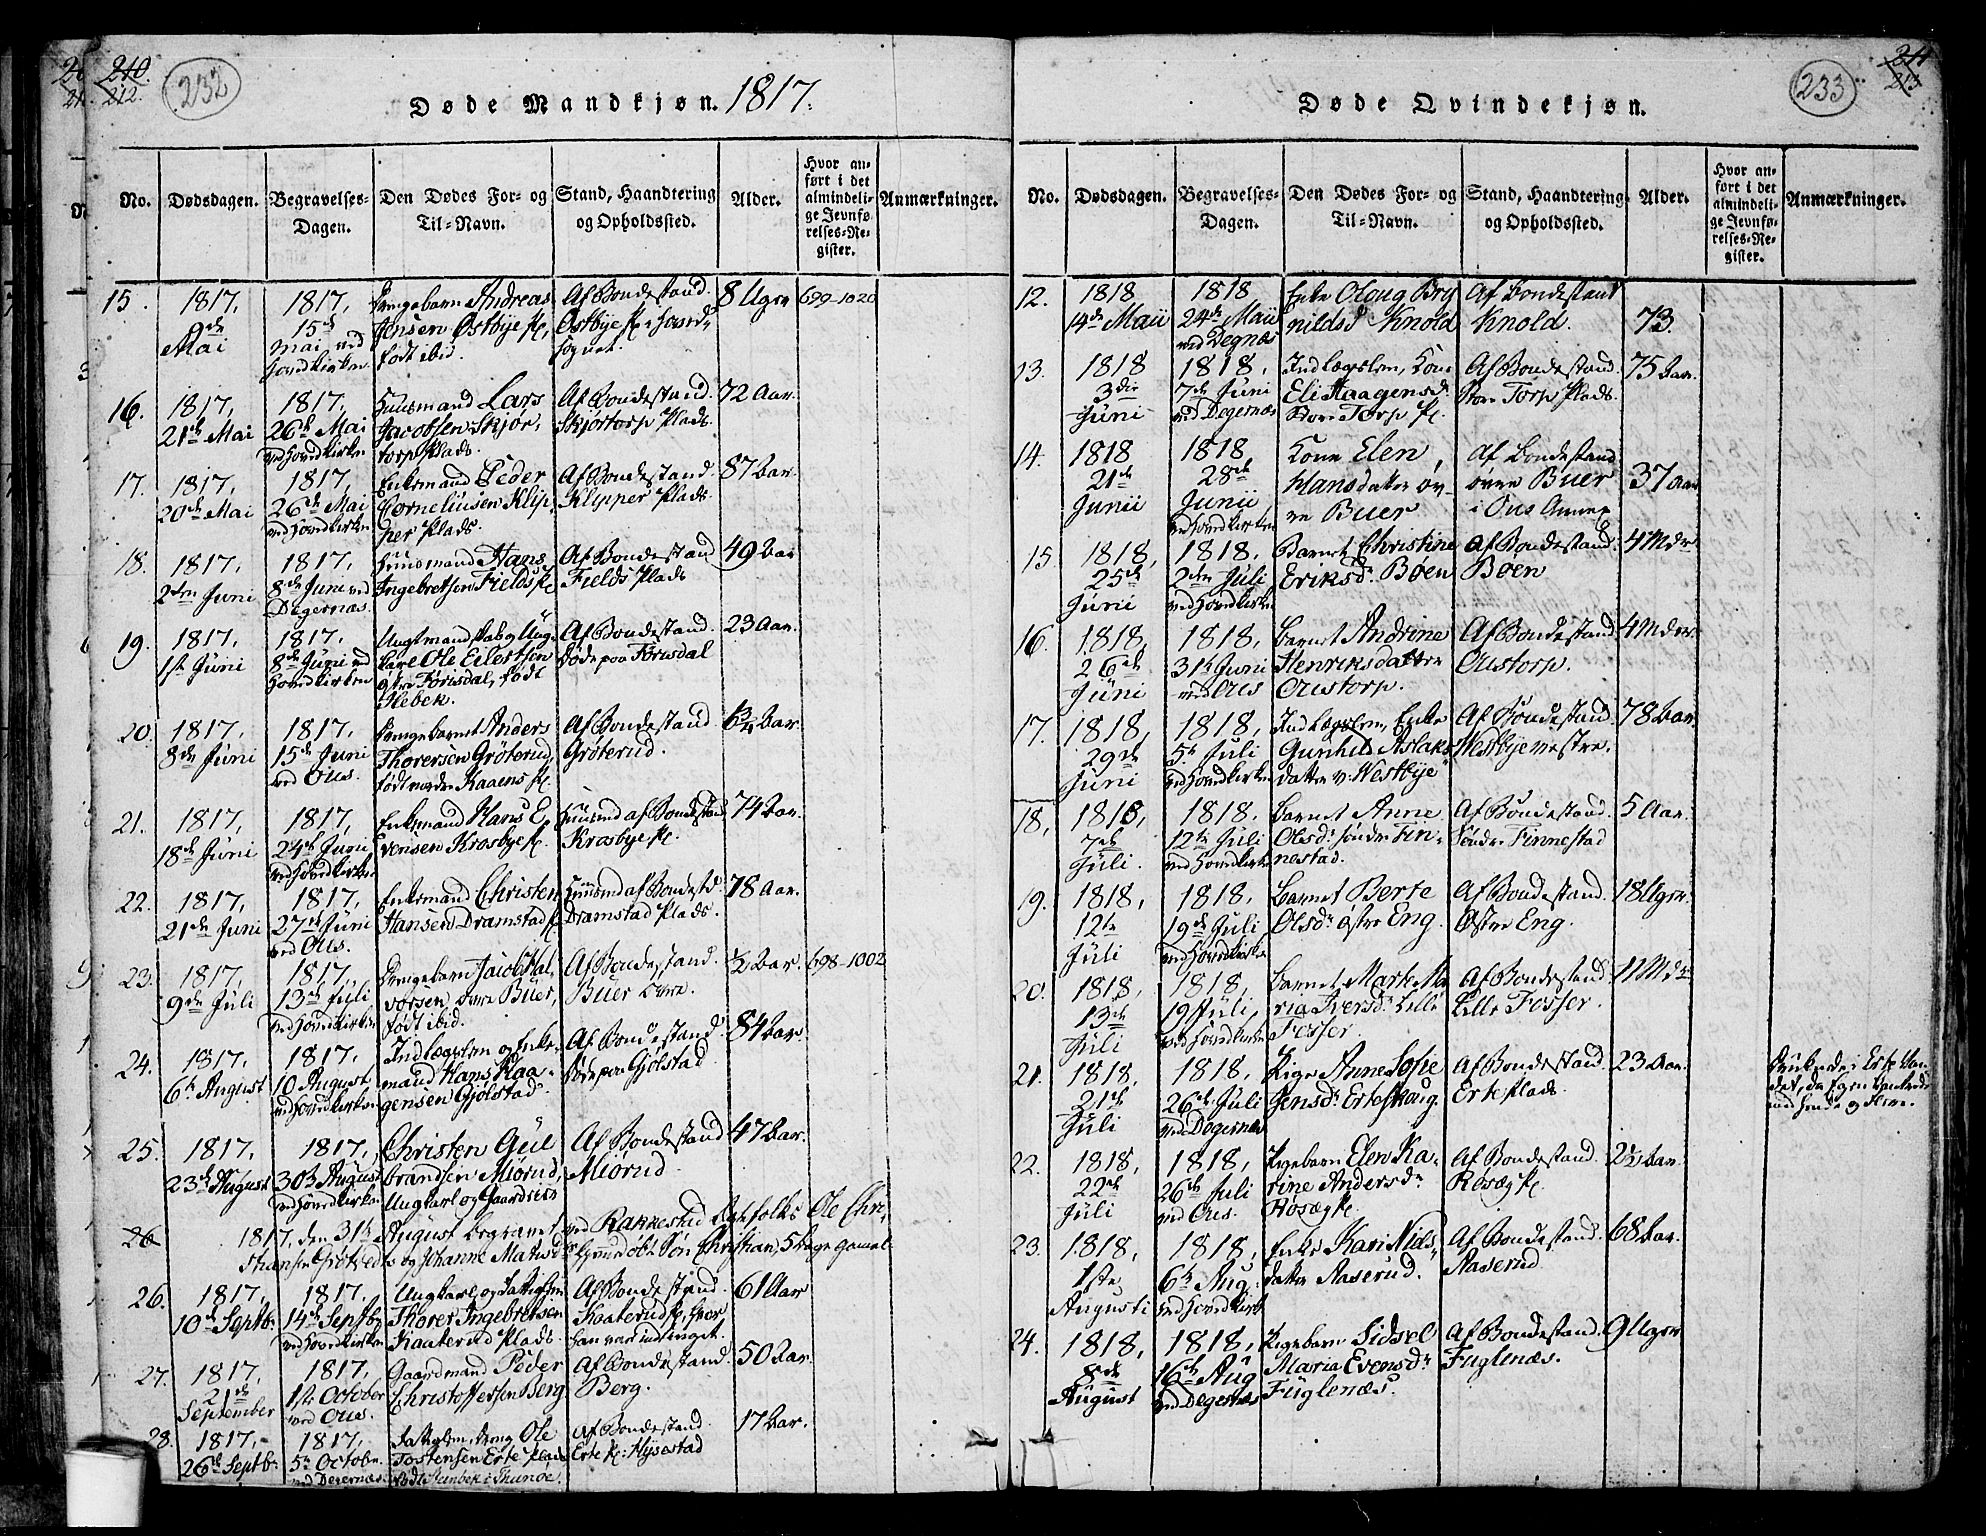 210.
212.
232
Døde Mandkjøn. 1817.
No.
Dødsdagen.
Begravelses-
Dagen.
Den Dødes For- og
Til-Navn.
Stand, Haandtering
og Opholdssted.
Alder.
Hvor an-
ført i det
almindeli-
ge Jevnfø-
relses-Re-
gister.
Anmærkninger.
15. 1817, 9de Mai
1817, 15de Mai ved Hovedkirken
Andreas Jensen Østbye
født ibid.
Af Bondestand.
Østbye
8 Uger
699-1020
16. 1817, 21de Mai
1817, 26de Mai ved Hovedkirken
Huusmand Lars
Jacobsen Skjør-
torp Plads.
Af Bondestand.
Skjørtorp Plads.
72 Aar.
17. 1817, 20de Mai
1817, 26de Mai ved Hovedkirken
Enkemand Peder
Corneliusen Klyp-
per Plads.
Af Bondestand.
Klypper Plads.
87 Aar.
18. 1817, 2den Juni
1817, 8de Juni ved Degernæs.
Huusmand Hans
Ingebretsen Fields Pl.
Af Bondestand
Fields Plads
49 Aar
19. 1817, 1ste Juni
1817, 8de Juni ved Hovedkirken
Ole Eilertsen
Af Bondestand.
Døde paa Förisdal
23 Aar.
20. 1817, 8de Juni
1817, 15de Juni ved Ous.
Anders
Thorersen Gröterud,
Af Bondestand.
Gröterud.
21. 1817, 18de Juni
1817, 24de Juni ved Hovedkirken
Enkemand Hans E-
vensen Krosbye Pl.
Huusmd af Bondestand
Krosbye Pl.
74 Aar.
22. 1817, 21de Juni
1817, 27de Juni ved Ous.
Enkemand Christen
Hansen Dramstad Pl.
Huusmd af Bondestd.
Dramstad Plads.
78 Aar.
23. 1817, 9de Juli
1817, 13de Juli ved Hovedkirken
Drengebarn Jacob Hal-
vorsen øvre Buer,
født ibid.
Af Bondestand.
Buer øvre.
½ Aar.
698-1002
24. 1817, 6te August
1817, 10 August, ved Hovedkirken
Indlægslem og Enke-
mand Hans Haa-
gensen Gjølstad.
Af Bondestand.
Døde paa Gjølstad.
84 Aar.
25. 1817, 23de August
1817, 30te August ved Hovedkirken
Christen Gul-
brandsen Miørud,
Ungkarl og Gaardeier
Af Bondestand
Miørud.
47 Aar.
26 1817, den 31te August begravet ved Rakkestad Ægtefolks Ole Chri-
og Johanne Søn Christian, 5 Dage Gammel
26. 1817, 10de Septbr.
1817, 14de Septbr. ved Hovedkirken
Ungkarl og Fattiglem
Thorer Ingebretsen
Kaaterud Plads.
Af Bondestand.
Kaaterud Pl. hvor
han var indtinget.
61 Aar
27. 1817, 21de September
1817, 1ste October ved Ous.
Gaardmand Peder
Christoffersen Berg
Af Bondestand.
Berg.
50 Aar.
28. 1817, 26de Septbr.
1817, 5te Octobr. ved Degernæs
Ole
Tostensen Erte Plads
Af Bondestand
Erte Pl.
17 Aar.
Døde Qvindekjøn.
233
211
213
No.
Dødsdagen.
Begravelses-
Dagen.
Den Dødes For- og
Til-Navn.
Stand, Haandtering
og Opholdssted.
Alder.
Hvor an-
ført i det
almindeli-
ge Jevnfø-
relses-Re-
gister.
Anmærkninger.
12. 1818 14de Maii
1818 24de Maii ved Degnæs
Enke Oloug Bry-
nildsd. Knold
Af Bondestand
Knold.
73.
13. 1818 3die Juni
1818, 7de Juni ved Degernæs
Indlægslem, Kone
Eli Haagensd.
Store Torp Pl.
Af Bondestand.
Store Torp Plads.
75 Aar.
14. 1818 21de Junii
1818, 28de Junii ved Hovedkirken
Kone Elen
Hansdatter øv-
re Buer
Af Bondestand
øvre Buer
i Ous Annex
37 Aar
15. 1818, 25de Junii
1818, 2den Juli ved Hovedkirken
Barnet Christine
Eriksd. Böen
Af Bondestand.
Böen
4 Mdr.
16. 1818, 26de Juni
1818, 31te Juni ved Ous
Barnet Andrine
Henriksdatter
Oustorp.
Af Bondestand.
Oustorp.
4 Mder.
17. 1818, 29de Juni
1818, 5te Juli ved Hovedkirken
Indlægslem, Enke
Gunhild Aslaks-
datter v. Westbye
Af Bondestand.
Westbye vestre.
78 Aar.
18. 1818, 7de Juli.
1818. 12te Juli ved Hovedkirken
Barnet Anne
Olesdr. søndre Fin-
nestad.
Af Bondestand.
Søndre Finnestad
5 Aar.
19. 1818, 12te Juli
1818, 19de Juli ved Hovedkirken
Barnet Berte
Olsdr. østre Eng.
Af Bondestand.
Østre Eng.
18 Uger.
20. 1818, 13de Juli
1818, 19 Juli, ved Hovedkirken
Barnet Marte Ma-
ria Iversdr. Lille
Fosser.
Af Bondestand.
Lille Fosser.
11 Mdr.
21. 1818, 21de Juli
1818, 26de Juli ved Degernæs
Pige Anne Sofie
Jensdr. Erteskoug.
Af Bondestand.
Erte Plads.
23 Aar.
22. 1818, 22de Juli
1818, 26de Juli ved Ous.
Pigebarn Elen Ka-
rine Andersdr.
Af Bondestand.
2½ Aar.
23. 1818, 1ste Augusti
1818, 6te Aug. ved Hovedkirk.
Enke Kari Niels-
datter Aaserud.
Af Bondestand.
Aaserud
68 Aar.
24. 1818, 8de August
1818, 16de Aug. ved Degernæs
Pigebarn Sidsel
Maria Evensdr.
Fuglenæs.
Af Bondestand.
Fuglenæs.
9 Uger